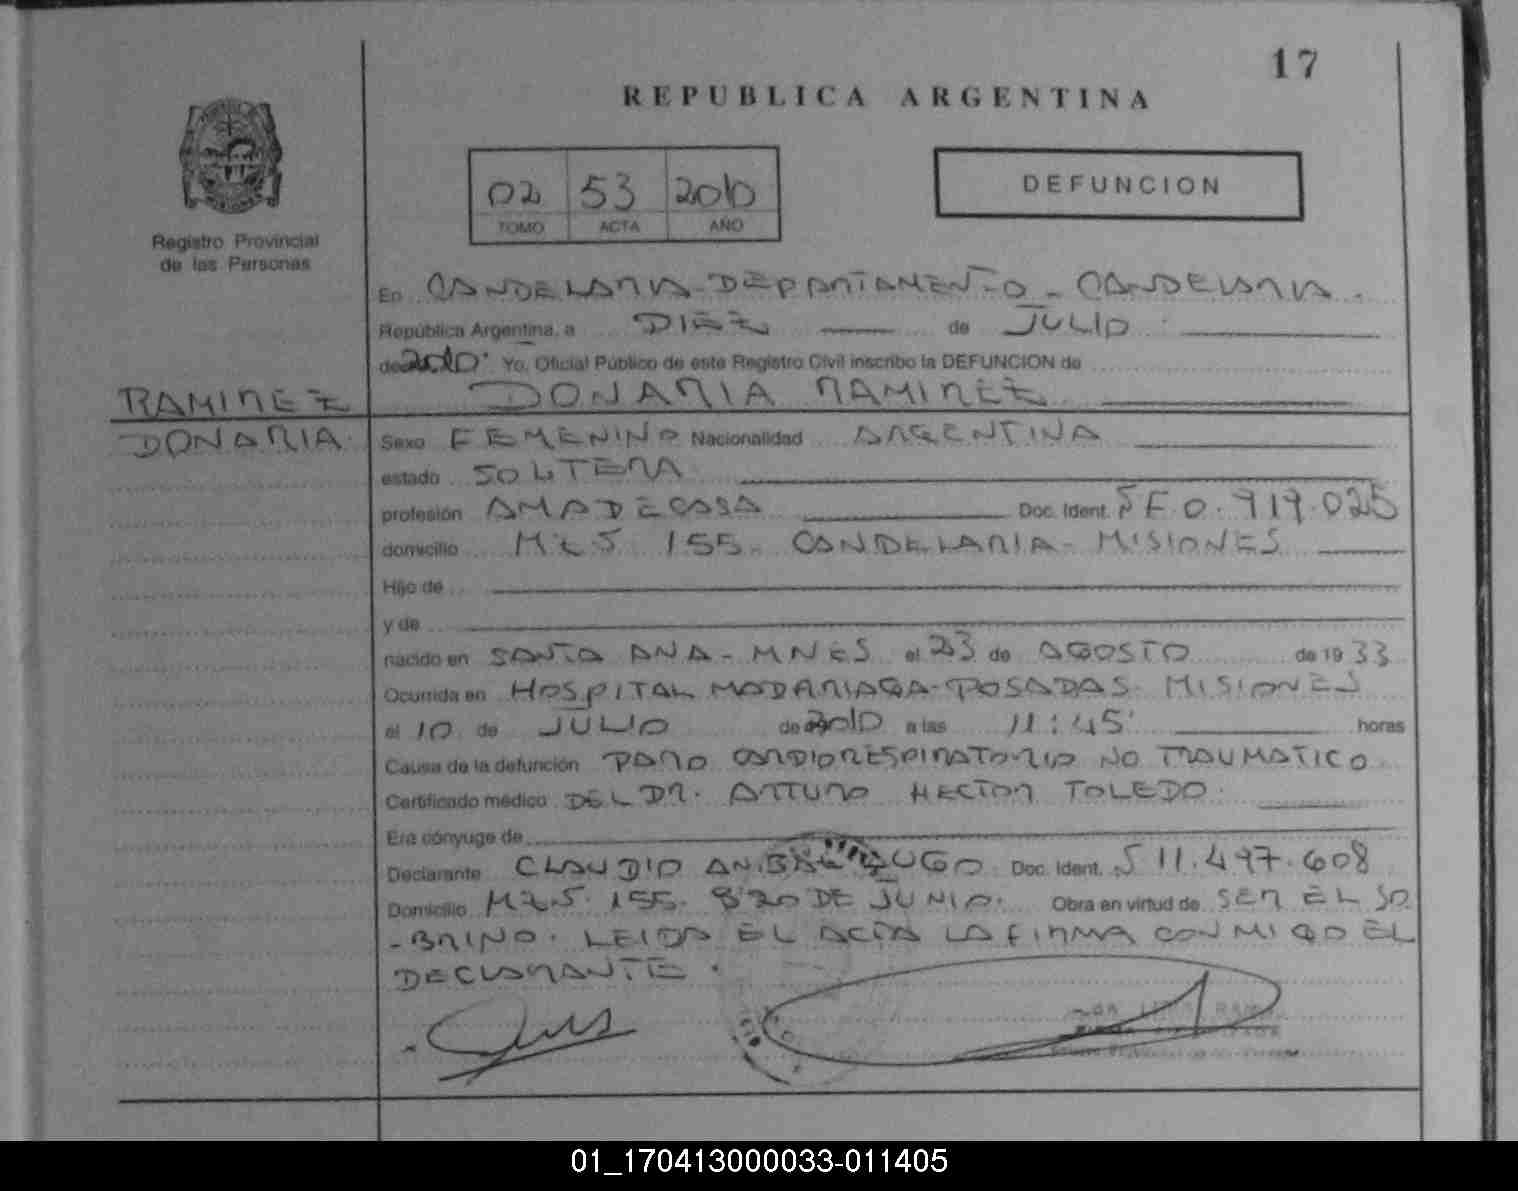 17
REPUBLICA ARGENTINA
02 53 2010
TOMO ACTA AÑO
DEFUNCION
Registro Provincial
de las Personas
En CANDELARIA - DEPARTAMENTO - CANDELARIA.
República Argentina, a DIEZ de JULIO
de 2010. Yo, Oficial Público de este Registro Civil inscribo la DEFUNCION de
RAMIREZ DONARIA RAMIREZ
DONARIA Sexo FEMENINO Nacionalidad ARGENTINA
estado SOLTERA
profesión AMA DE CASA Doc. Ident. F 0.919.025
domicilio MZ 5 155. CANDELARIA - MISIONES
Hijo de
y de
nacido en SANTA ANA - MNES el 23 de AGOSTO de 1933
Ocurrida en HOSPITAL MADARIAGA - POSADAS - MISIONES
el 10 de JULIO de 2010 a las 11:45 horas
Causa de la defunción PARO CARDIORESPIRATORIO NO TRAUMATICO
Certificado médico DEL DR. ARTURO HECTOR TOLEDO.
Era cónyuge de
Declarante CLAUDIO ANIBAL LUGO Doc. Ident. 11.497.608
Domicilio MZ 5. 155. Bº 20 DE JUNIO. Obra en virtud de SER EL SO
-BRINO. LEIDA EL ACTA LA FIRMA CONMIGO EL
DECLARANTE.
01_170413000033-011405